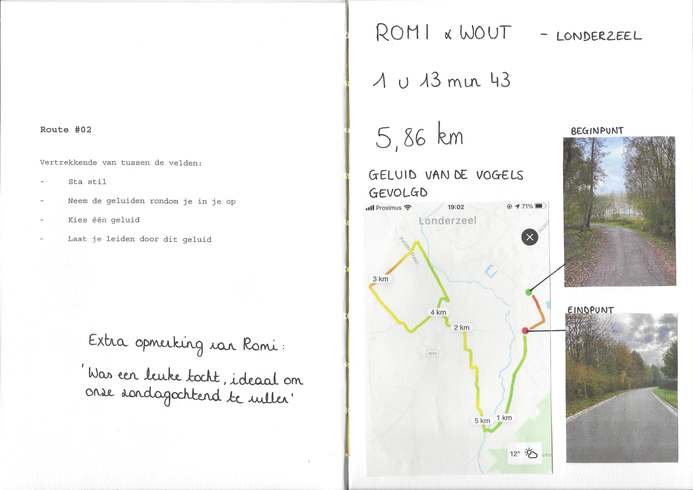 Route #02
Vertrekkende van tussen de velden:
- Sta stil
- Neem de geluiden rondom je in je op
- Kies één geluid
- Laat je leiden door dit geluid
Extra opmerking van Romi:
'Was een leuke tocht, ideaal om
onze zondagochtend te vullen'
ROMI & WOUT - LONDERZEEL
1 u 13 min 43
5,86 km
GELUID VAN DE VOGELS
GEVOLGD
Proximus 19:02 71%
Londerzeel
3 km
4 km
2 km
5 km
1 km
12°
BEGINPUNT
EINDPUNT